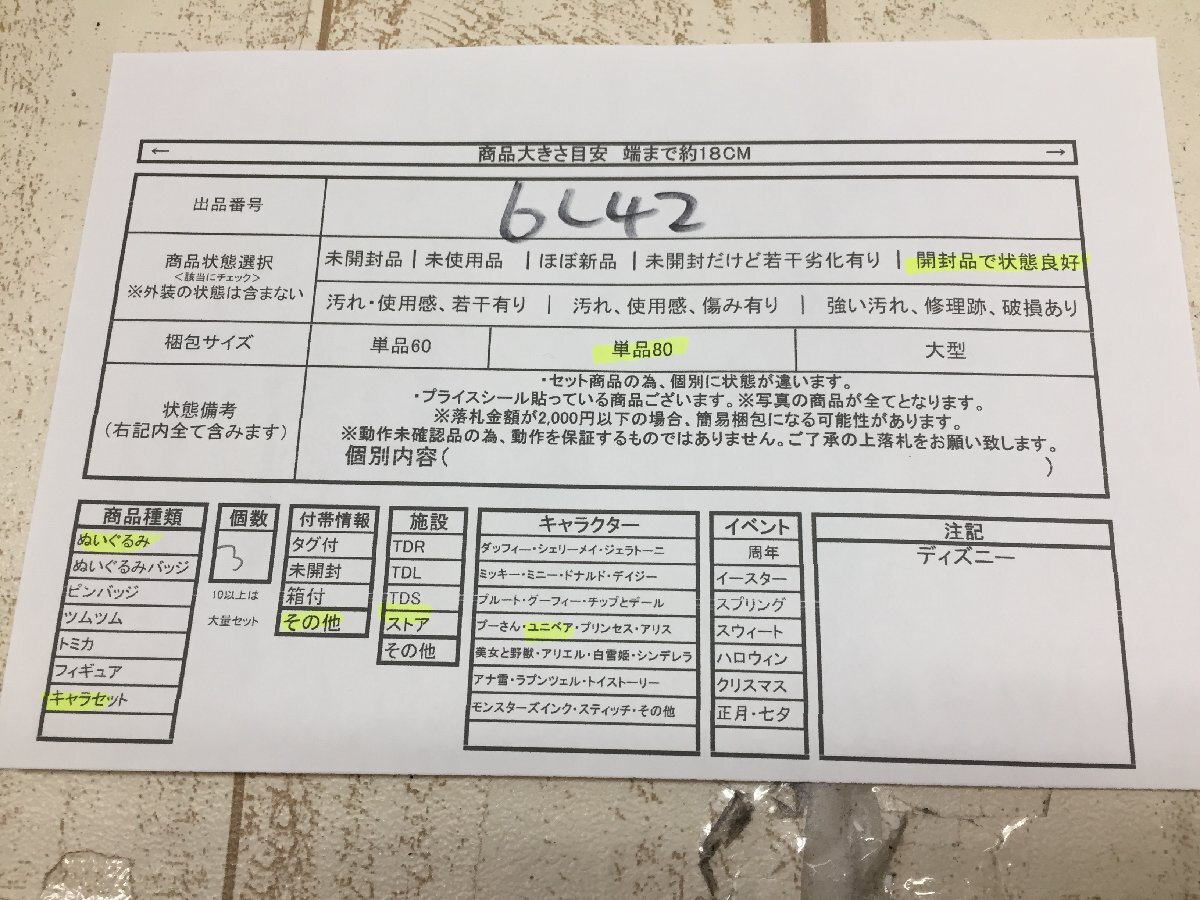 ← 商品大きさ目安 端まで約18CM →
出品番号 6L42
商品状態選択
<該当にチェック>
※外装の状態は含まない
未開封品 | 未使用品 | ほぼ新品 | 未開封だけど若干劣化有り | 開封品で状態良好
汚れ・使用感、若干有り | 汚れ、使用感、傷み有り | 強い汚れ、修理跡、破損あり
梱包サイズ 単品60 単品80 大型
状態備考
(右記内全て含みます)
・セット商品の為、個別に状態が違います。
・プライスシール貼っている商品ございます。※写真の商品が全てとなります。
※落札金額が2,000円以下の場合、簡易梱包になる可能性があります。
※動作未確認品の為、動作を保証するものではありません。ご了承の上落札をお願い致します。
個別内容( )
商品種類
ぬいぐるみ
ぬいぐるみバッジ
ピンバッジ
ツムツム
トミカ
フィギュア
キャラセット
個数
3
10以上は
大量セット
付帯情報
タグ付
未開封
箱付
その他
施設
TDR
TDL
TDS
ストア
その他
キャラクター
ダッフィー・シェリーメイ・ジェラトーニ
ミッキー・ミニー・ドナルド・デイジー
プルート・グーフィー・チップとデール
プーさん・ユニベア・プリンセス・アリス
美女と野獣・アリエル・白雪姫・シンデレラ
アナ雪・ラプンツェル・トイストーリー
モンスターズインク・スティッチ・その他
イベント
周年
イースター
スプリング
スウィート
ハロウィン
クリスマス
正月・七夕
注記
ディズニー